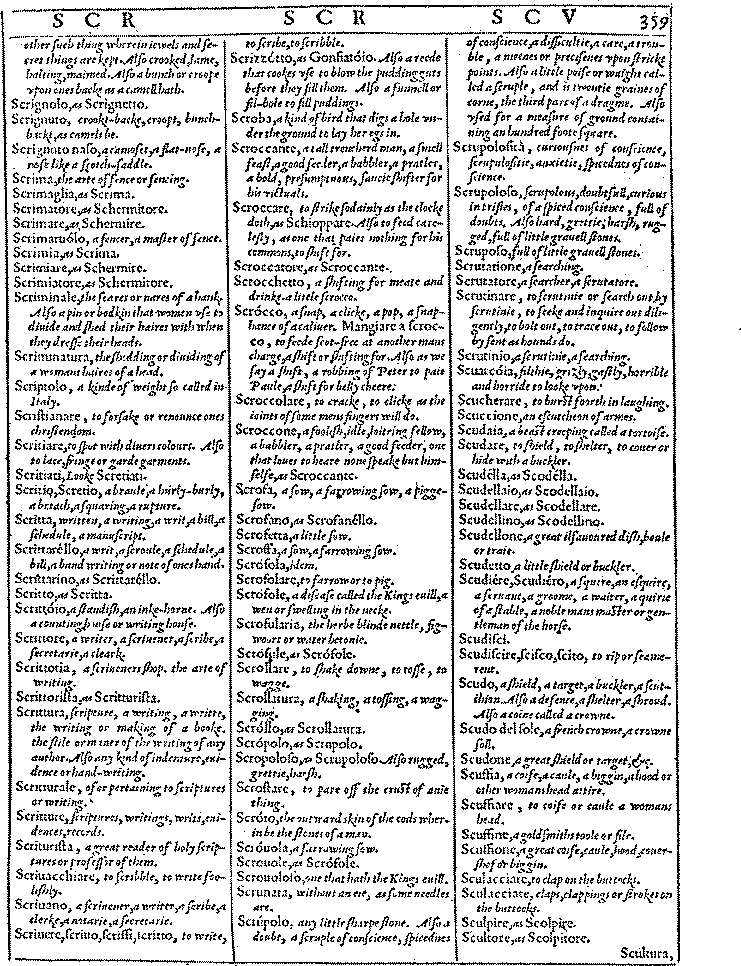 S C R
S C R
S C V
359
other such thing wherein iewels and se-
cret things are kept. Also crooked, lame,
halting, maimed. Also a bunch or croope
vpon ones backe as a camell hath.
Scrignolo, as Scrignetto.
Scrignuto, crookt-backe, croopt, bunch-
backt, as camels be.
Scrignoto naso, a camoset, a flat-nose, a
nose like a scotch-saddle.
Scrima, the arte of fence or fencing.
Scrimaglia, as Scrima.
Scrimatore, as Schermitore.
Scrimare, as Schermire.
Scrimaruólo, a fencer, a master of fence.
Scrimia, as Scrima.
Scrimiare, as Schermire.
Scrimiatore, as Schermitore.
Scriminale, the seares or nares of a hauke.
Also a pin or bodkin that women vse to
diuide and shed their haires with when
they dresse their heads.
Scriminatura, the shedding or diuiding of
a womans haires of a head.
Scriptolo, a kinde of weight so called in
Italy.
Scristianare, to forsake or renounce ones
christendom.
Scritiare, to spot with diuers colours. Also
to lace, fringe or garde garments.
Scritiati, Looke Scretiati.
Scritio, Scretio, a braule, a hurly-burly,
a breach, a squaring, a rupture.
Scritta, written, a writing, a writ, a bill, a
schedule, a manuscript.
Scrittaréllo, a writ, a scroule, a schedule, a
bill, a hand writing or note of ones hand.
Scrittarino, as Scrittaréllo.
Scritto, as Scritta.
Scrittóio, a standish, an inke-horne. Also
a counting house or writing house.
Scrittore, a writer, a scriuener, a scribe, a
secretarie, a clearke.
Scrittoria, a scriueners shop. the arte of
writing.
Scrittorista, as Scritturista.
Scrittura, scripture, a writing, a writte,
the writing or making of a booke.
the stile or maner of the writing of any
author. Also any kind of indenture, eui-
dence or hand-writing.
Scritturale, of or pertaining to scriptures
or writing.
Scritture, scriptures, writings, writs, eui-
dences, records.
Scritturista, a great reader of holy scrip-
tures or professor of them.
Scriuacchiare, to scribble, to write foo-
lishly.
Scriuano, a scriuener, a writer, a scribe, a
clerke, a notarie, a secretarie.
Scriuere, scriuo, scrissi, scritto, to write,
to scribe, to scribble.
Scrizzótto, as Gonfiatóio. Also a reede
that cookes vse to blow the pudding guts
before they fill them. Also a funnell or
fil-bole to fill puddings.
Scroba, a kind of bird that digs a hole vn-
der the ground to lay her egs in.
Scroccante, a tall trencherd man, a smell
feast, a good feeder, a babbler, a pratler,
a bold, presumptuous, saucie shifter for
his victuals.
Scroccare, to strike sodainly as the clocke
doth, as Schioppare. Also to feed care-
lesly, as one that paies nothing for his
commons, to shift for.
Scroccatore, as Scroccante.
Scrocchetto, a shifting for meate and
drinke. a little scrocco.
Scrócco, a snap, a clicke, a pop, a snap-
hance of a caliuer. Mangiare a scroc-
co, to feede scot-free at another mans
charge, a shift or shifting for. Also as we
say a shift, a robbing of Peter to pait
Paule, a shift for belly cheere.
Scroccolare, to cracke, to clicke as the
ioints of some mens fingers will do.
Scroccone, a foolish, idle, loitring fellow,
a babbler, a pratler, a good feeder, one
that loues to heare none speake but him-
selfe, as Scroccante.
Scrofa, a sow, a farowing sow, a pigge-
sow.
Scrofano, as Scrofanéllo.
Scrofetta, a little sow.
Scroffa, a sow, a farrowing sow.
Scrófola, idem.
Scrofolare, to farrow or to pig.
Scrófole, a disease called the Kings euill, a
wen or swelling in the necke.
Scrofularia, the herbe blinde nettle, fig-
wort or water betonie.
Scrófule, as Scrófole.
Scrollare, to shake downe, to tosse, to
wagge.
Scrollatura, a shaking, a tossing, a wag-
ging.
Scróllo, as Scrollatura.
Scrópolo, as Scrupolo.
Scropoloso, as Scrupoloso. Also rugged,
grettie, harsh.
Scrostare, to pare off the crust of anie
thing.
Scróto, the outward skin of the cods wher-
in be the stones of a man.
Scróuola, a farrowing sow.
Scrouole, as Scrófole.
Scrouololo, one that hath the Kings euill.
Scrunata, without an eie, as some needles
are.
Scrúpolo, any little sharpe stone. Also a
doubt, a scruple of conscience, spicednes
of conscience, a difficultie, a care, a trou-
ble, a metaes or precisenes vpon stricke
points. Also a little poise or waight cal-
led a scruple, and is twentie graines of
corne, the third part of a dragme. Also
vsed for a measure of ground contai-
ning an hundred foote square.
Scrupolosità, curiousnes of conscience,
scrupulositie, anxietie, spicednes of con-
science.
Scrupoloso, scrupolous, doubtfull, curious
in trifles, of a spiced conscience, full of
doubts. Also hard, grettie, harsh, rug-
ged, full of little grauell stones.
Scruposo, full of little grauell stones.
Scrutatione, a searching.
Scrutatore, a searcher, a scrutatore.
Scrutinare, to scrutinie or search out by
scrutinie, to seeke and inquire out dili-
gently, to bolt out, to trace out, to follow
by sent as hounds do.
Scrutinio, a scrutinie, a searching.
Scuaccóia, filthie, grizly, gastly, horrible
and horride to looke vpon.
Scucherare, to burst foorth in laughing.
Scuccione, an escucheon of armes.
Scudaia, a beast creeping called a tortoise.
Scudare, to shield, to shelter, to couer or
hide with a buckler.
Scudélla, as Scodélla.
Scudellaio, as Scodellaio.
Scudellare, as Scodellare.
Scudellino, as Scodellino.
Scudellone, a great ilfauoured dish, boule
or traie.
Scudetto, a little shield or buckler.
Scudiére, Scudiéro, a squire, an esquire,
a seruant, a groome, a waiter, a quirie
of a stable, a noble mans master or gen-
tleman of the horse.
Scudisci.
Scudiscire, scisco, scito, to rip or seame-
rent.
Scudo, a shield, a target, a buckler, a scut-
chion. Also a defence, a shelter, a shroud.
Also a coine called a crowne.
Scudo del sole, a french crowne, a crowne
soll.
Scudone, a great shield or target, &c.
Scuffia, a coife, a caule, a biggin, a hood or
other womans head attire.
Scuffiare, to coife or caule a womans
head.
Scuffine, a goldsmiths toole or file.
Scuffione, a great coife, caule, hood, couer-
shef or biggin.
Sculacciare, to clap on the buttocks.
Sculacciate, claps, clappings or strokes on
the buttocks.
Sculpire, as Scolpire.
Scultore, as Scolpitore.
Scultura,